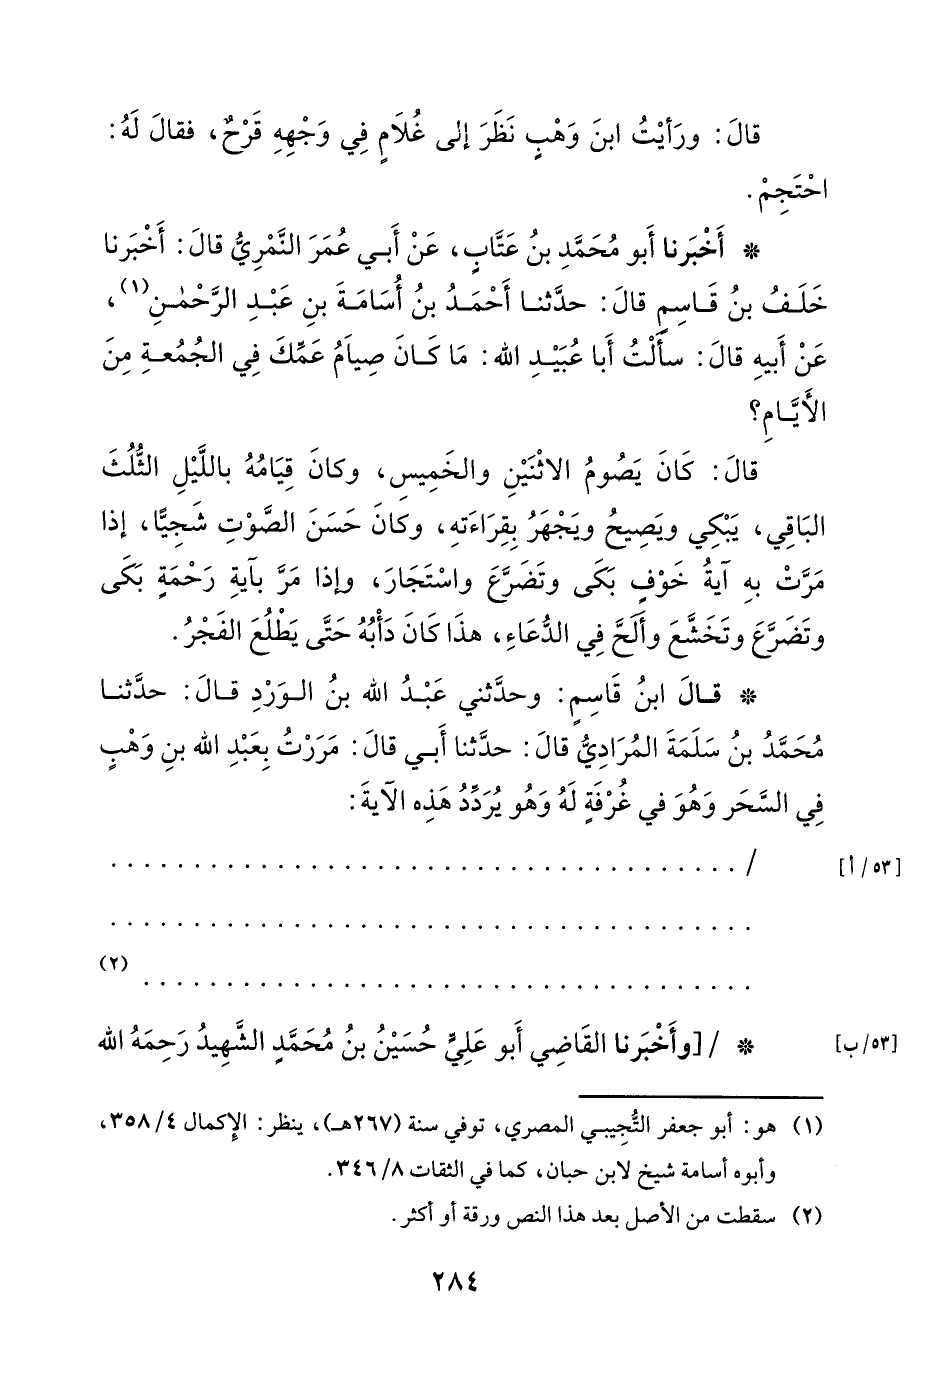 قالَ: ورَأيْتُ ابنَ وَهْبٍ نَظَرَ إلى غُلَامٍ فِي وَجْهِهِ قَرْحٌ، فقالَ لَهُ:
احْتَجِمْ.
* أَخْبَرنا أبو مُحَمَّدِ بنُ عَتَّابٍ، عَنْ أَبي عُمَرَ النَّمْرِيُّ قالَ: أَخْبَرنا
خَلَفُ بنُ قَاسِمٍ قالَ: حدَّثنا أَحْمَدُ بنُ أُسَامَةَ بنِ عَبْدِ الرَّحْمٰنِ(١)،
عَنْ أَبيهِ قالَ: سأَلْتُ أبا عُبَيْدِ الله: مَا كَانَ صِيامُ عَمِّكَ فِي الجُمُعةِ مِنَ
الأَيَّامِ؟
قالَ: كَانَ يَصُومُ الاثْنَيْنِ والخَمِيسِ، وكانَ قِيَامُهُ باللَّيْلِ الثُّلُثَ
البَاقِي، يَبْكِي ويَصِيحُ ويَجْهَرُ بِقِرَاءَتهِ، وكانَ حَسَنَ الصَّوْتِ شَجِيًّا، إذا
مَرَّتْ بهِ آيةُ خَوْفٍ بَكَى وتَضَرَّعَ واسْتَجَارَ، وإذا مَرَّ بآيةِ رَحْمَةٍ بَكَى
وتَضَرَّعَ وتَخَشَّعَ وأَلَحَّ فِي الدُّعَاءِ، هذَا كَانَ دَأْبُهُ حَتَّى يَطْلُعَ الفَجْرُ.
* قالَ ابنُ قَاسِمٍ: وحدَّثني عَبْدُ الله بنُ الوَرْدِ قالَ: حدَّثنا
مُحَمَّدُ بنُ سَلَمَةَ المُرَادِيُّ قالَ: حدَّثنا أَبي قالَ: مَرَرْتُ بِعَبْدِ الله بنِ وَهْبٍ
فِي السَّحَرِ وَهُوَ في غُرْفَةٍ لَهُ وَهُو يُرَدِّدُ هَذِه الآيةَ:
[٥٣/أ] / . . . . . . . . . . . . . . . . . . . . . . . . . . . . . . . . . . . . . .
. . . . . . . . . . . . . . . . . . . . . . . . . . . . . . . . . . . . . . .
. . . . . . . . . . . . . . . . . . . . . . . . . . . . . . . . . . . . . (٢)
[٥٣/ب] * / [وأَخْبَرنا القَاضِي أبو عَليٍّ حُسَيْنُ بنُ مُحَمَّدٍ الشَّهِيدُ رَحِمَهُ الله
(١) هو: أبو جعفر التُّجِيبي المصري، توفي سنة (٢٦٧هـ)، ينظر: الإكمال ٣٥٨/٤،
وأبوه أسامة شيخ لابن حبان، كما في الثقات ٣٤٦/٨.
(٢) سقطت من الأصل بعد هذا النص ورقة أو أكثر.
٢٨٤